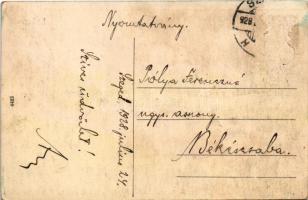 Nyomtatvány.
Szeged, 1928. július 24.
Szives üdvözlet!
Pólya Ferencné
ugys. asszony.
Békéscsaba.